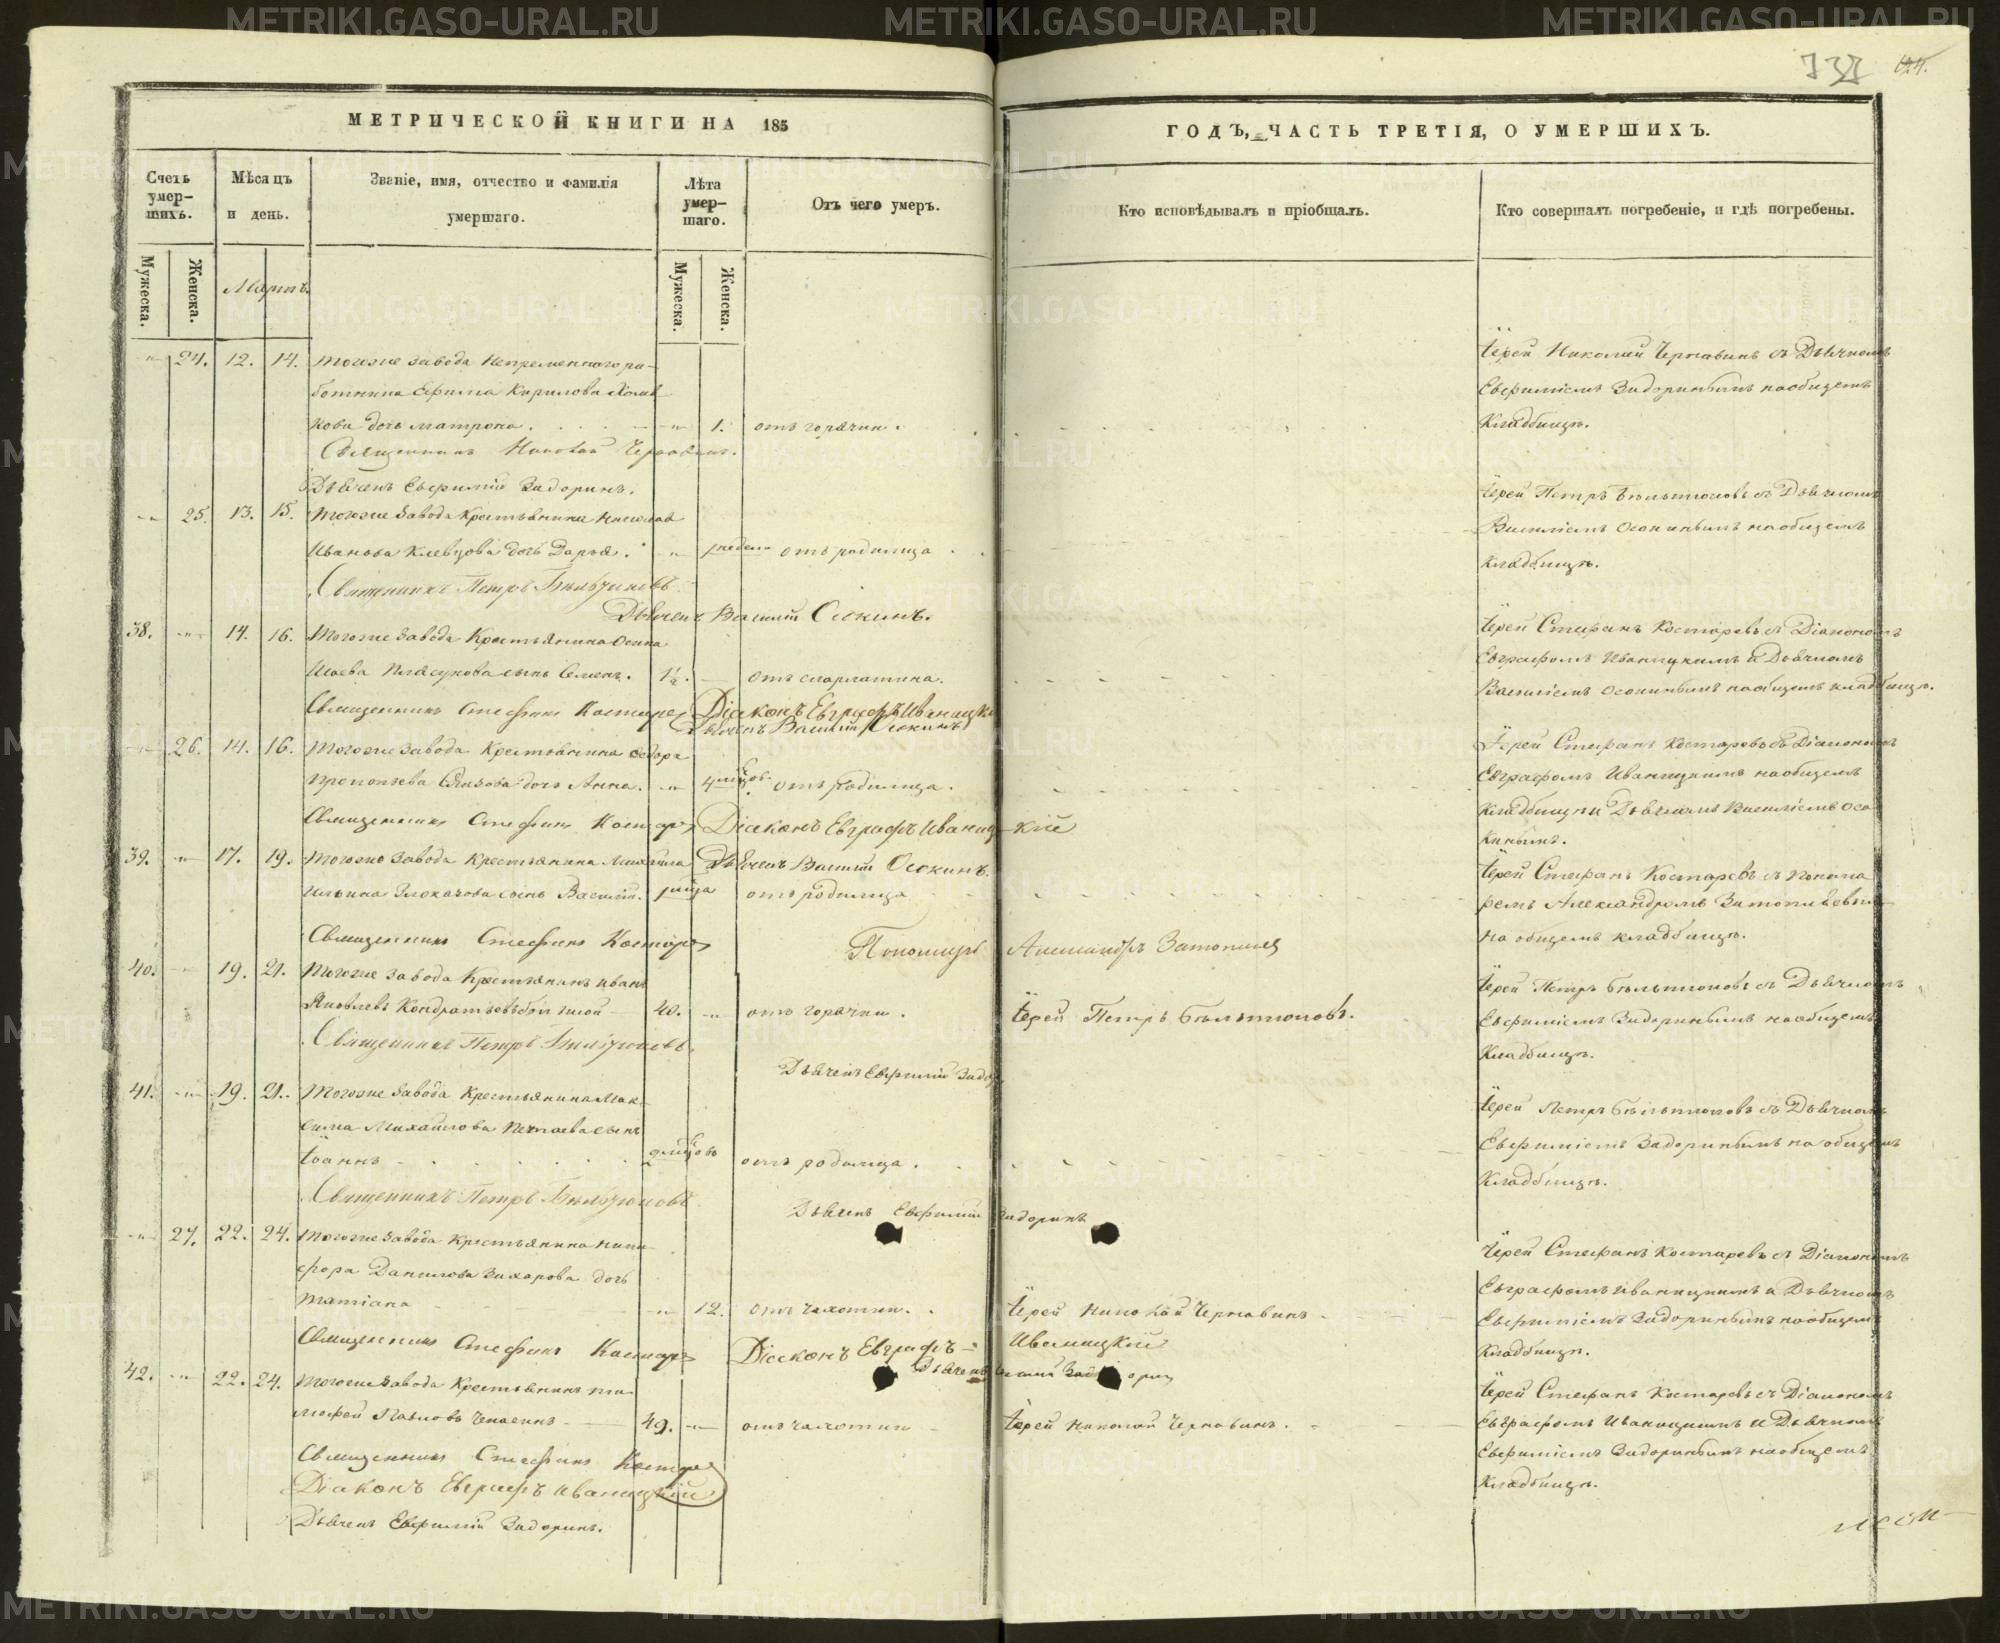 МЕТРИЧЕСКОЙ КНИГИ НА 185
ГОДЪ, ЧАСТЬ ТРЕТІЯ, О УМЕРШИХЪ.
Счетъ умер- шихъ.
Мѣсяцъ и день.
Званіе, имя, отчество и фамилія умершаго.
Лѣта умер- шаго.
Отъ чего умеръ.
Кто исповѣдывалъ и пріобщалъ.
Кто совершалъ погребеніе, и гдѣ погребены.
Мужеска.
Женска.
Мужеска.
Женска.
Мартъ.
24. 12. 14. тогоже завода Непременного ра-
ботника Ефима Кирилова
кова дочь Матрона. 1. отъ горячки.
Іерей Николай Чернавинъ съ Дьячкомъ
Евфиміемъ Задоринымъ на общемъ
Кладбищѣ.
Священникъ Николай Чернавинъ.
Дьячекъ Евфимій Задоринъ.
25. 13. 15. тогоже завода Крестьянина
Иванова Клевцова дочь Дарья. отъ родимца
Іерей Петръ съ Дьячкомъ
Василіемъ Осокинымъ на общемъ
кладбищѣ.
Священникъ Петръ
Дьячекъ Василій Осокинъ.
38. 14. 16. тогоже завода Крестьянина Осипа
Исаева Плясунова сынъ Семенъ. 1½. отъ скарлатина.
Іерей Стефанъ Костаревъ съ Діакономъ
Евграфомъ Иваницкимъ и Дьячкомъ
Василіемъ Осокинымъ на общемъ кладбищѣ.
Священникъ Стефанъ Костарев Діаконъ Евграфъ Иваницкі
Дьячекъ Василій Осокинъ
26. 14. 16. тогоже завода Крестьянина Федора
дочь Анна. 4 отъ родимца.
Іерей Стефанъ Костаревъ съ Діакономъ
Евграфомъ Иваницкимъ на общемъ
кладбищѣ и Дьячкомъ Василіемъ Осо-
кинымъ.
Священникъ Стефанъ Костарев Діаконъ Евграфъ Иваницкій
Дьячекъ Василій Осокинъ.
39. 17. 19. тогоже завода Крестьянина Михаила
Ильина Злоказова сынъ Василій. отъ родимца
Іерей Стефанъ Костаревъ съ Понома-
ремъ Александромъ
на общемъ кладбищѣ.
Священникъ Стефанъ Костарев Пономарь Александръ
40. 19. 21. тогоже завода Крестьянинъ Иванъ
Яковлевъ 40. отъ горячки.
Іерей Петръ
Іерей Петръ съ Дьячкомъ
Евфиміемъ Задоринымъ на общемъ
Кладбищѣ.
Священникъ Петръ
Дьячекъ Евфимій Задор
41. 19. 21. тогоже завода Крестьянина Мак-
сима Михайлова сынъ
Іоаннъ отъ родимца.
Іерей Петръ съ Дьячкомъ
Евфиміемъ Задоринымъ на общемъ
Кладбищѣ.
Священникъ Петръ
Дьячекъ Евфимій Задоринъ
27. 22. 24. тогоже завода Крестьянина Ники-
фора Данилова Захарова дочь
татіана 12. отъ чахотки.
Іерей Николай Чернавинъ
Іерей Стефанъ Костаревъ съ Діакономъ
Евграфомъ Иваницкимъ и Дьячкомъ
Евфиміемъ Задоринымъ на общемъ
Кладбищѣ.
Священникъ Стефанъ Костарев Діаконъ Евграфъ Иваницкій
42. 22. 24. тогоже завода Крестьянинъ ти-
мофей Павловъ 49. отъ чахотки
Іерей Николай Чернавинъ.
Іерей Стефанъ Костаревъ съ Діакономъ
Евграфомъ Иваницкимъ и Дьячкомъ
Евфиміемъ Задоринымъ на общемъ
Кладбищѣ.
Священникъ Стефанъ Костарев
Діаконъ Евграфъ Иваницкій
Дьячекъ Евфимій Задоринъ.
METRIKI.GASO-URAL.RU